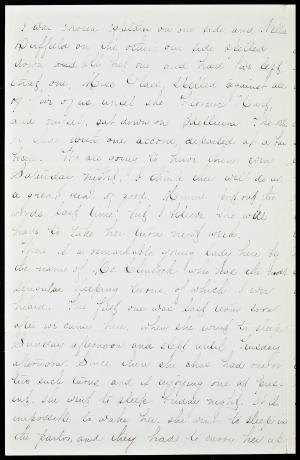 I was chosen captain on one side and Nellie
Buffield on the other, our side spelled
down and all but one and had two left,
that one, Miss Clark, spelled against all
of us until she Florence
and myself, sat down on The
with one accord, departed
We are going to have them every
Saturday night. I think they will do us
a great deal of good. Minnie put out the
words last time, but I believe she will
have to take her turn next week.
There is a remarkable young lady here by
the name of Mc Clintock who has the most
singular sleeping turns, of which I ever
heard. The first one was last term soon
after we came here, when she went to sleep
Sunday afternoon and slept until Tuesday
afternoon. Since then she has had one or
two such turns and is enjoying one at pres-
ent, she went to sleep Friday night. It is
impossible to wake her, she went to sleep in
the parlor, and they had to carry her up